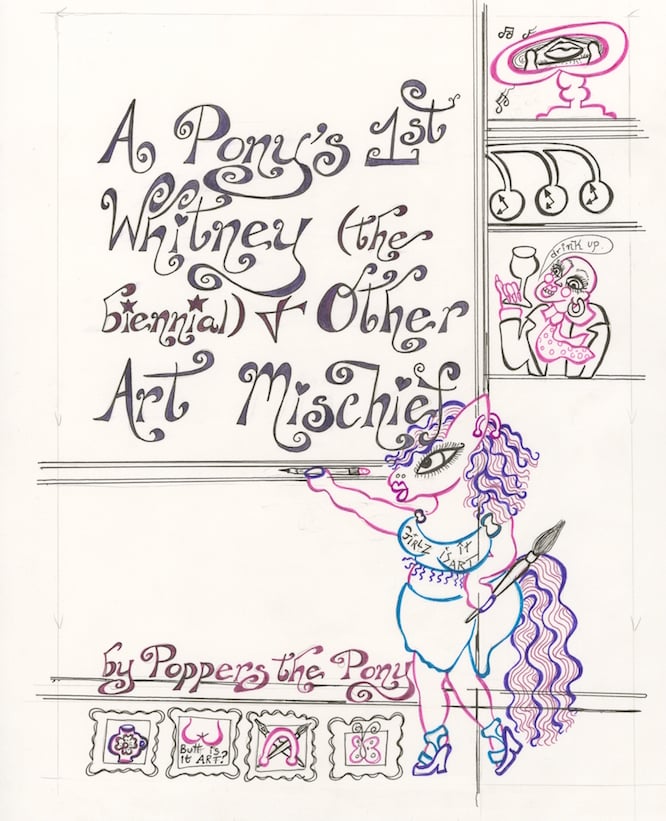 A Pony's 1st
Whitney (the
biennial) + Other
Art Mischief
drink up.
GiRLZ is it ART
by Poppers the Pony
Butt is
it ART?